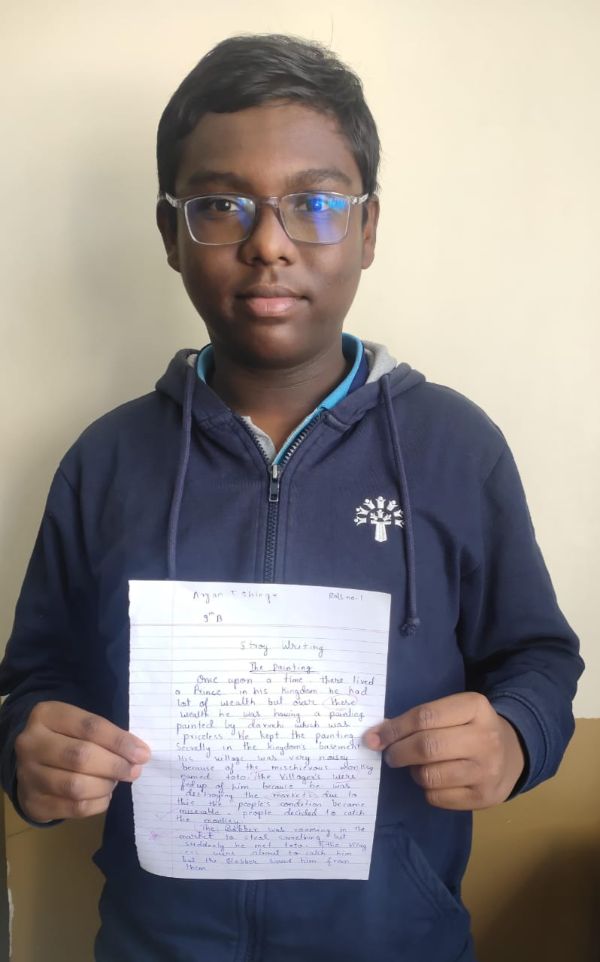 Aryan S Shinge Roll no-1
9th B
Stroy Writing
The Painting
Once upon a time there lived
a Prince in his kingdom he had
lot of wealth but over these
wealth he was having a painting
painted by which was
priceless. He kept the painting
Secretly in the kingdom's basement
His village was very noisy
because of the mischievous monkey
named toto. The Villagers were
fedup of him because he was
destroying the markets due to
this the people's condition became
miserable. people decided to catch
the monkey.
The Robber was roaming in the
market to steal something but
suddenly he met toto. the
were about to catch him
but the Robber saved him from
them